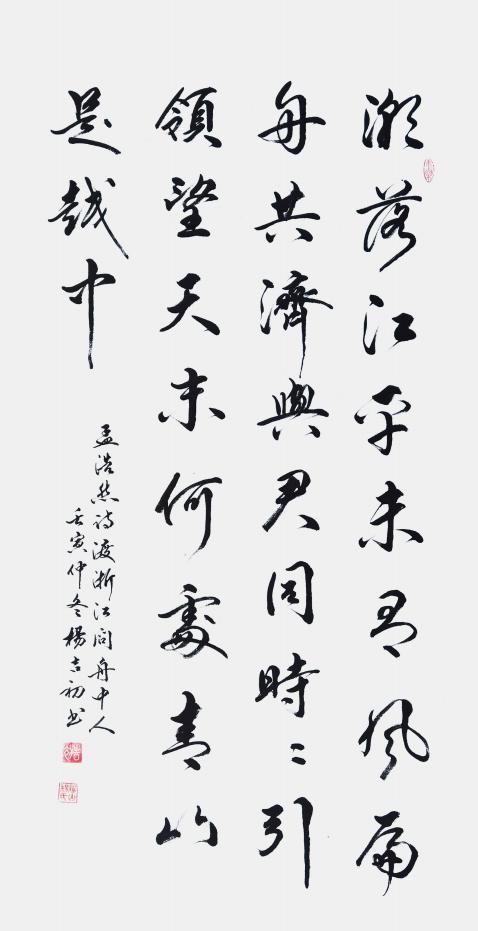 潮落江平未有風扁
舟共濟與君同時〻引
領望天末何處青山
是越中
孟浩然詩渡浙江問舟中人
壬寅仲冬楊吉初書